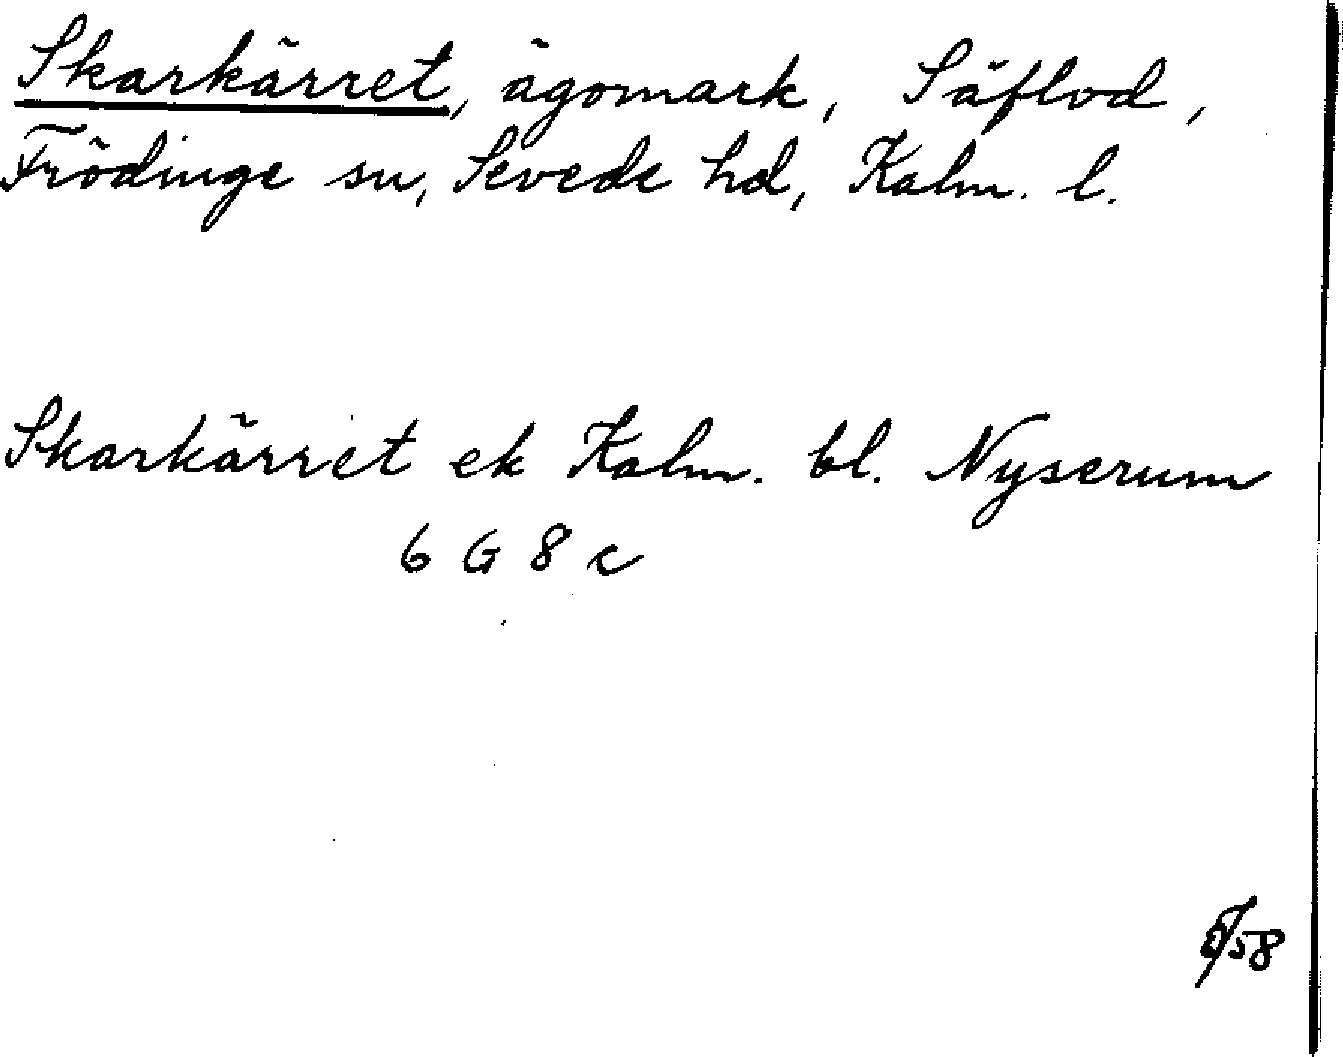 Skarkärret, ägomark, Säflod,
Frödinge sn, Sevede hd, Kalm. l.
Skarkärret ek Kalm. bl. Nyserum
6 G 8 c
/58